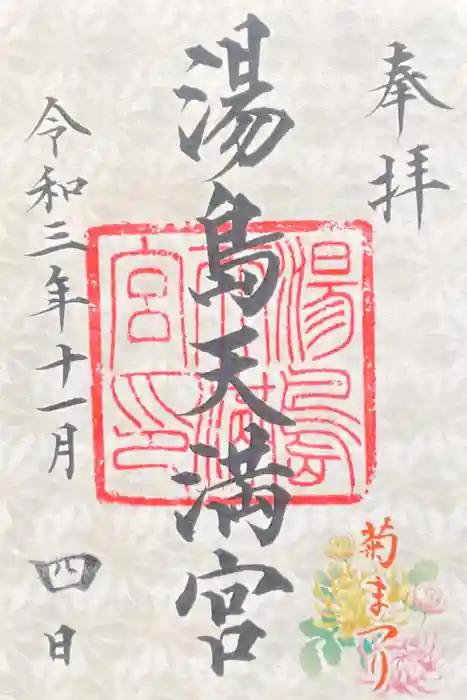 奉拝
湯島天満宮
令和三年十一月四日
菊まつり
湯島
天満
宮印